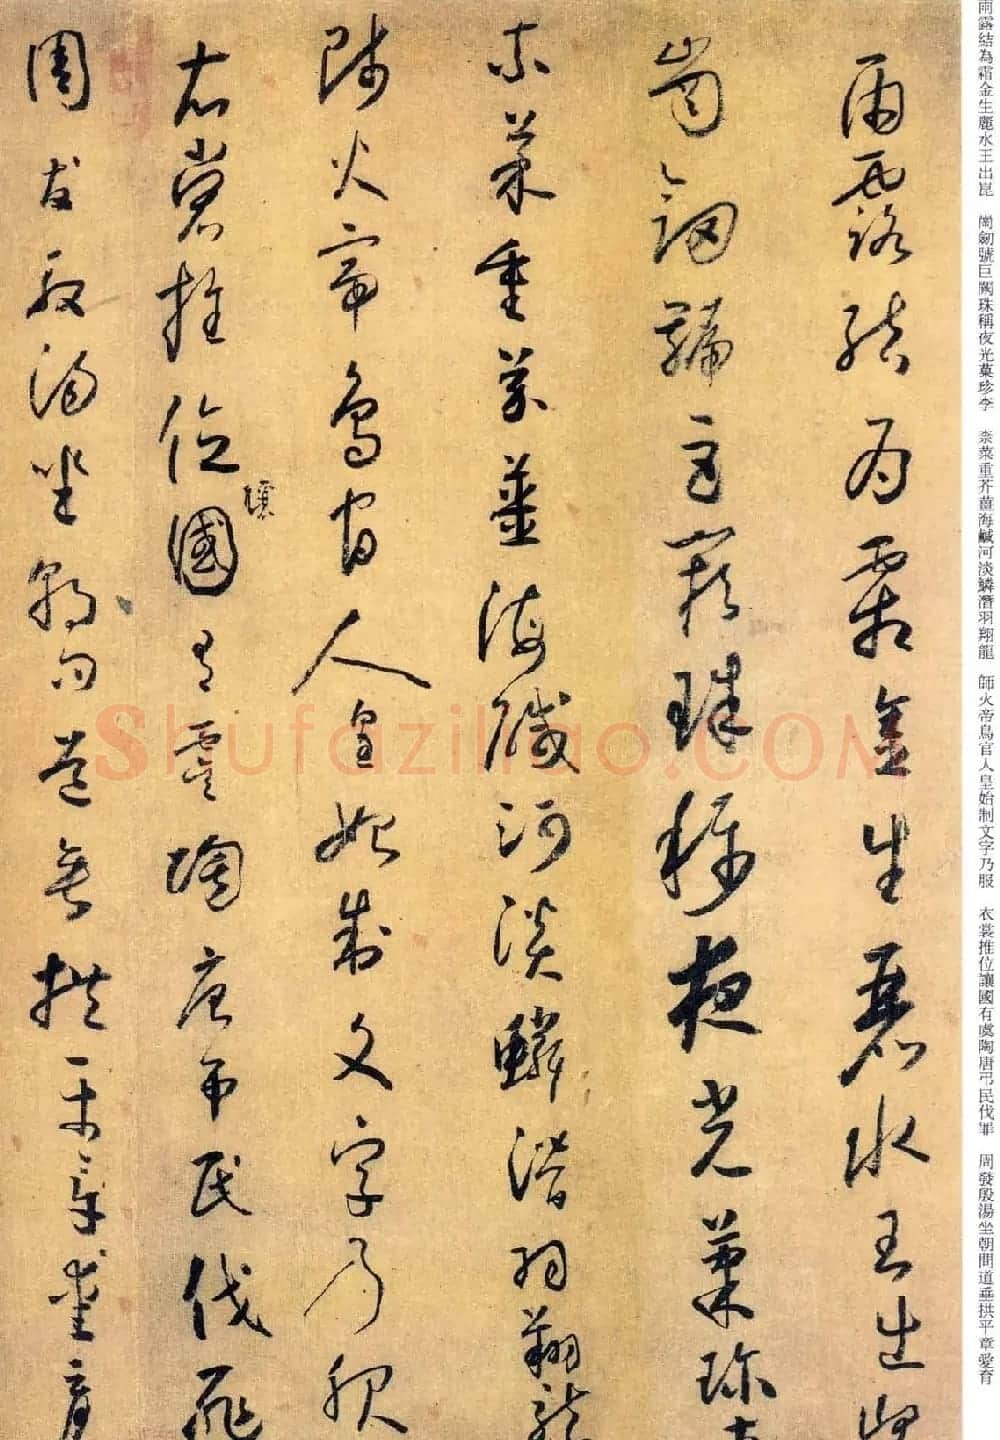 雨露結為霜金生麗水王出崑 崗劒號巨闕珠稱夜光菓珍李 柰菜重芥薑海鹹河淡鱗潛羽翔龍 師火帝鳥官人皇始制文字乃服 衣裳推位讓國有虞陶唐弔民伐罪 周發殷湯坐朝問道垂拱平章愛育
雨露結為霜金生麗水玉出崑
崗劒號巨闕珠稱夜光菓珍李
柰菜重芥薑海鹹河淡鱗潛羽翔龍
師火帝鳥官人皇始制文字乃服
衣裳推位國有虞陶唐弔民伐罪
讓
周發殷湯坐朝問道垂拱平章愛育
Shufaziliao.COM